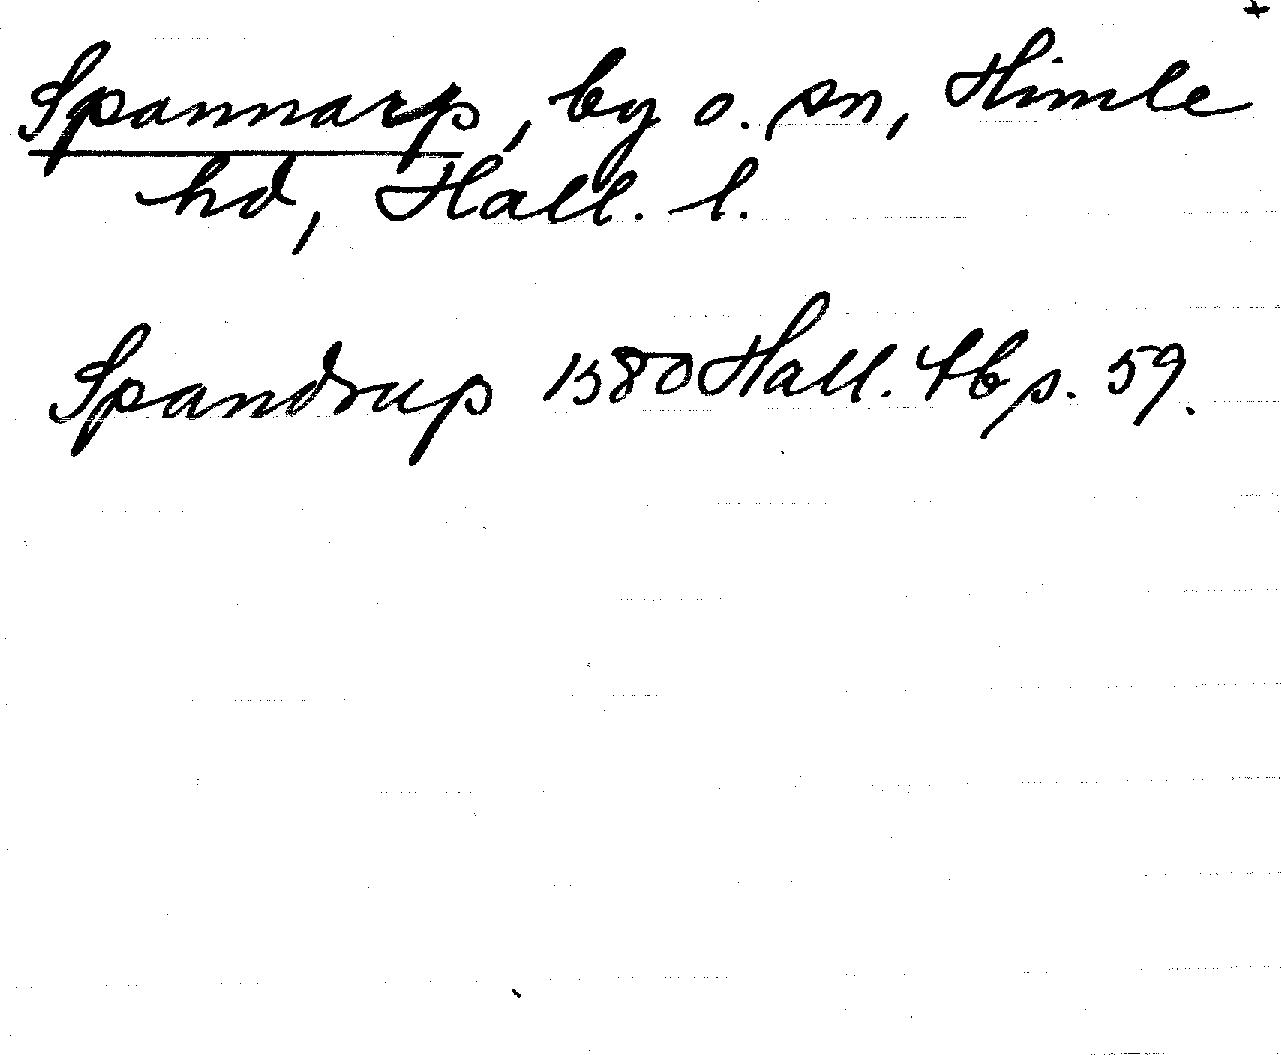 +
Spannarp, by o. sn, Himle
hd, Hall. l.
Spandrup 1580 Hall. tb s. 59.